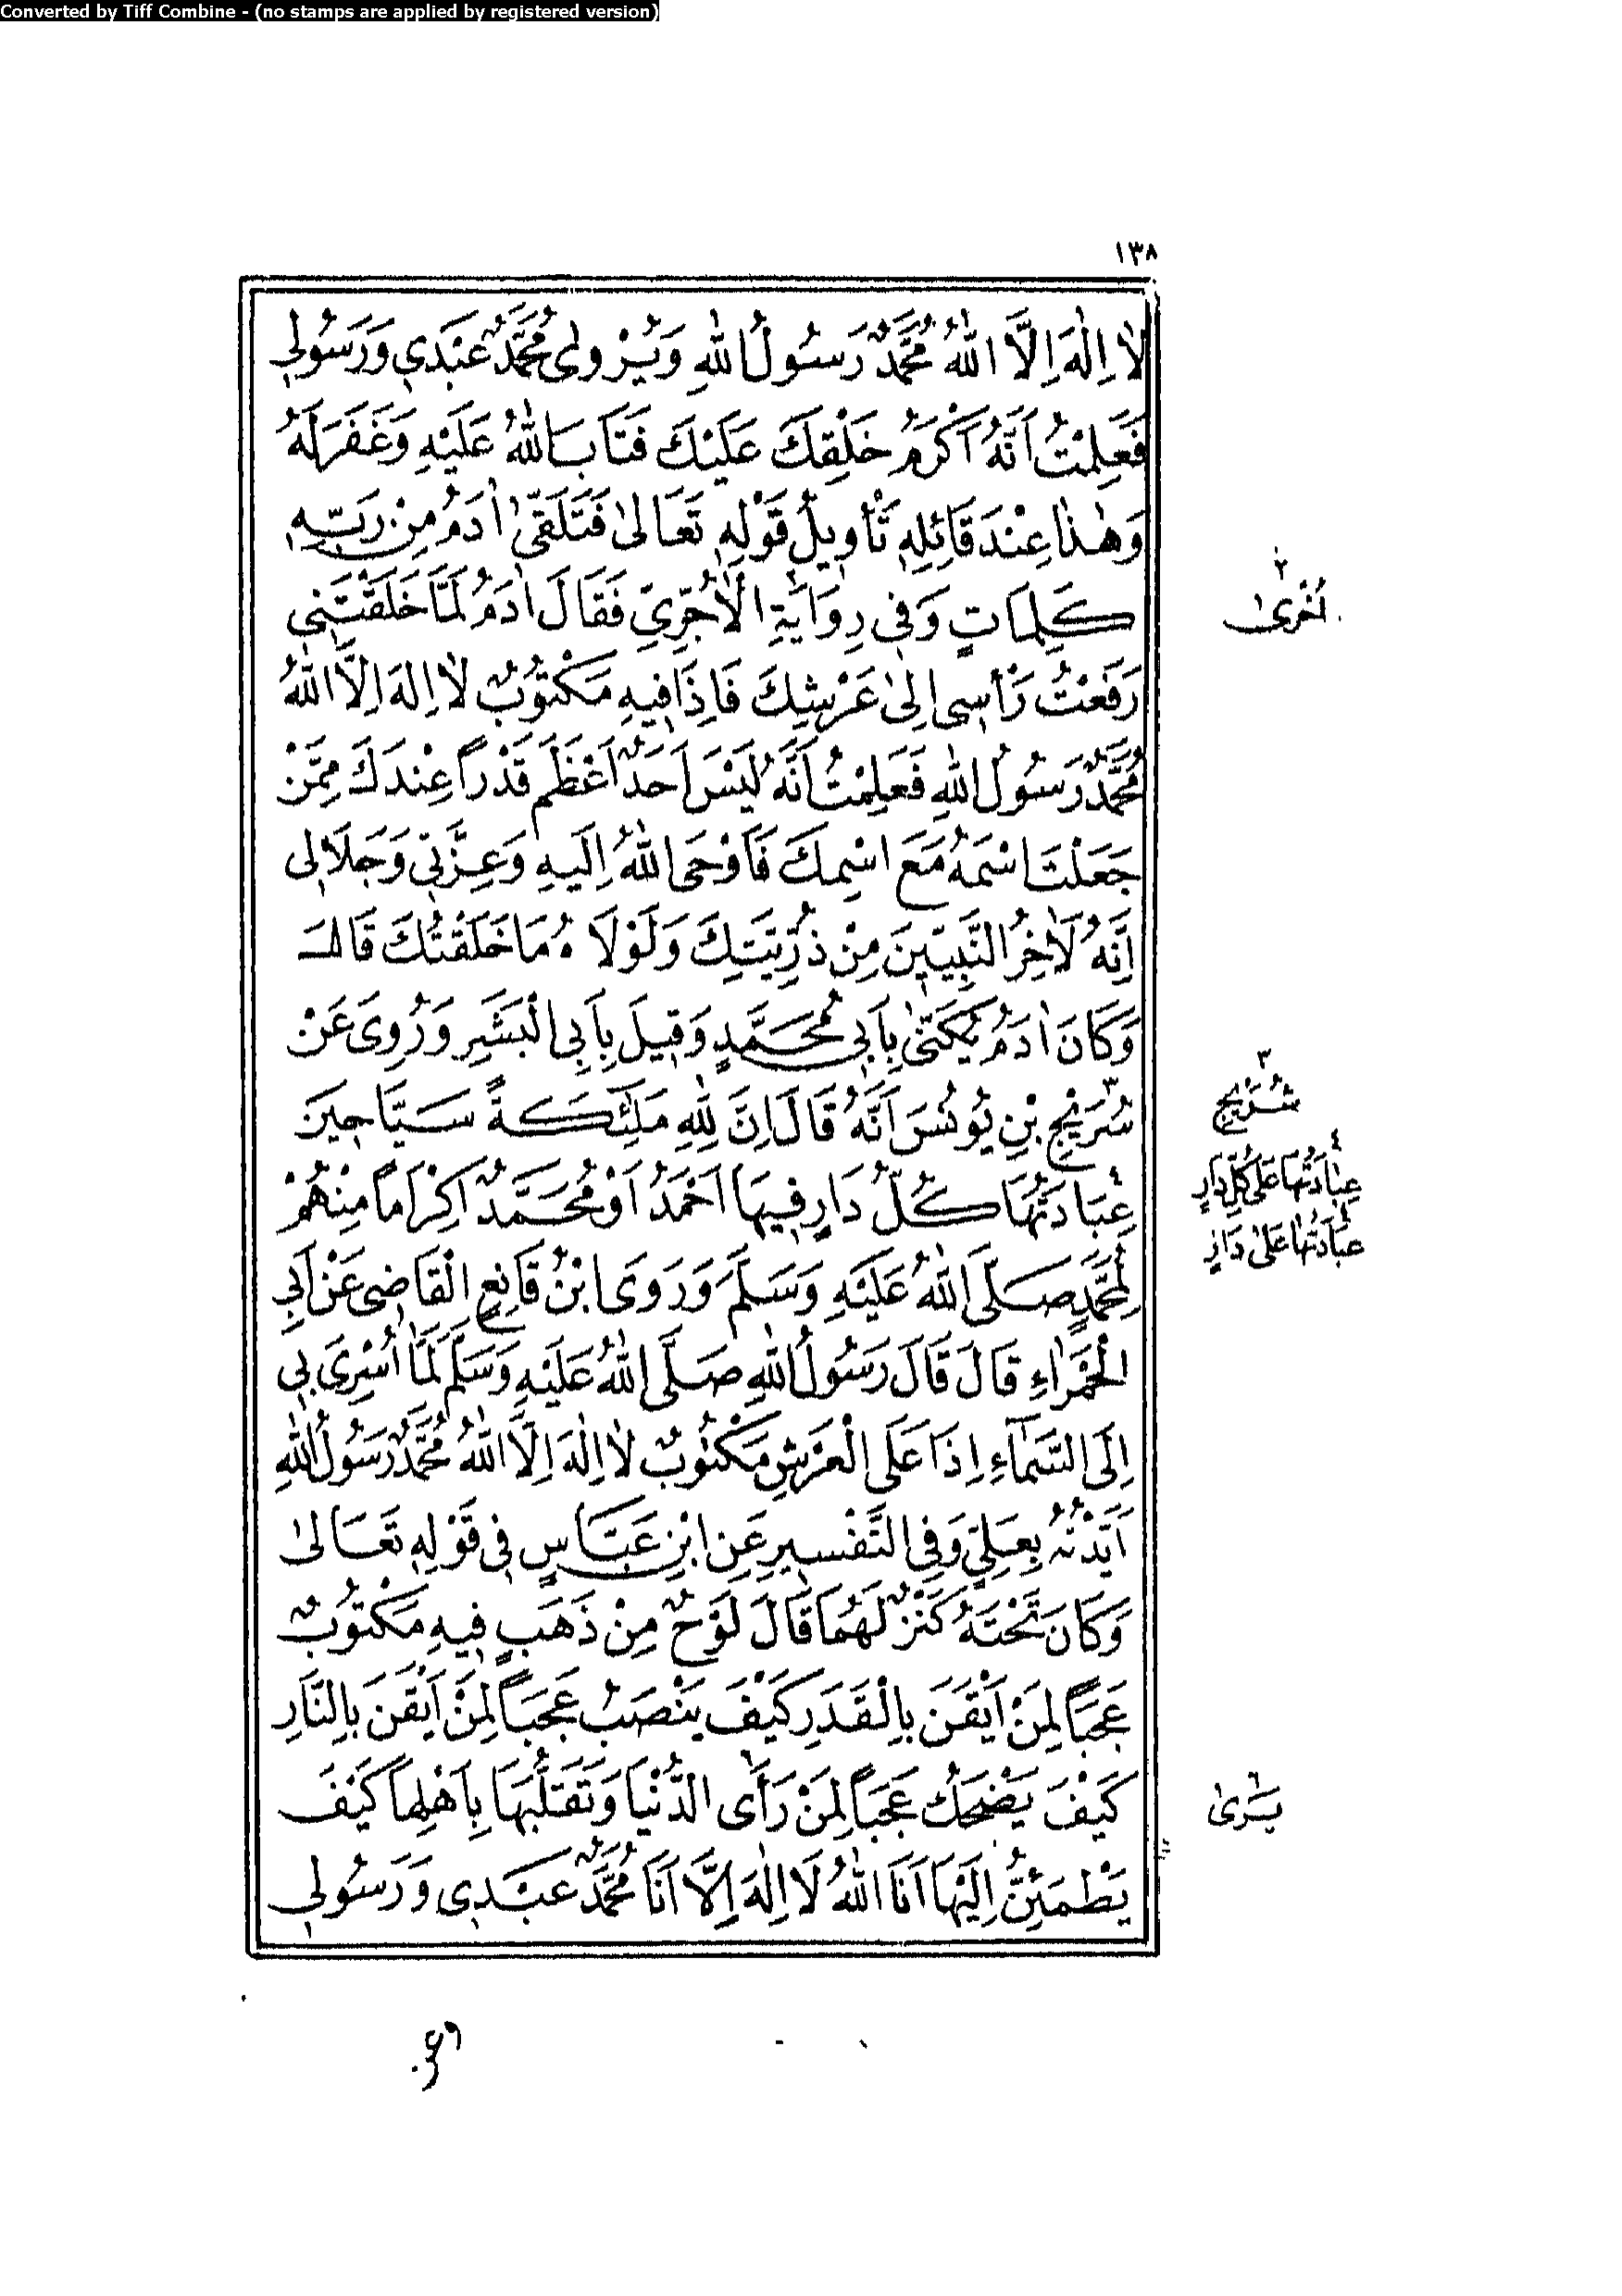 Converted by Tiff Combine - (no stamps are applied by registered version)
١٣٨
لَا اِلٰهَ اِلَّا اللّٰهُ مُحَمَّدٌ رَسُولُ اللّٰهِ وَيُرْوٰى مُحَمَّدٌ عَبْدِي وَرَسُولِي
فَعَلِمْتُ اَنَّهُ اَكْرَمُ خَلْقِكَ عَلَيْكَ فَتَابَ اللّٰهُ عَلَيْهِ وَغَفَرَ لَهُ
وَهٰذَا عِنْدَ قَائِلِهِ تَأْوِيلُ قَوْلِهِ تَعَالٰى فَتَلَقّٰى اٰدَمُ مِنْ رَبِّهِ
كَلِمَاتٍ وَفِي رِوَايَةِ الْاٰجُرِّيِّ فَقَالَ اٰدَمُ لَمَّا خَلَقْتَنِي
رَفَعْتُ رَأْسِي اِلٰى عَرْشِكَ فَاِذَا فِيهِ مَكْتُوبٌ لَا اِلٰهَ اِلَّا اللّٰهُ
مُحَمَّدٌ رَسُولُ اللّٰهِ فَعَلِمْتُ اَنَّهُ لَيْسَ اَحَدٌ اَعْظَمَ قَدْرًا عِنْدَكَ مِمَّنْ
جَعَلْتَ اسْمَهُ مَعَ اسْمِكَ فَاَوْحَى اللّٰهُ اِلَيْهِ وَعِزَّتِي وَجَلَالِي
اِنَّهُ لَاٰخِرُ النَّبِيِّينَ مِنْ ذُرِّيَّتِكَ وَلَوْلَاهُ مَا خَلَقْتُكَ قَالَ
وَكَانَ اٰدَمُ يُكَنّٰى بِاَبِي مُحَمَّدٍ وَقِيلَ بِاَبِي الْبَشَرِ وَرُوِيَ عَنْ
سُرَيْجِ بْنِ يُونُسَ اَنَّهُ قَالَ اِنَّ لِلّٰهِ مَلٰئِكَةً سَيَّاحِينَ
عِبَادَتُهَا كُلُّ دَارٍ فِيهَا اَحْمَدُ اَوْ مُحَمَّدٌ اِكْرَامًا مِنْهُمْ
لِمُحَمَّدٍ صَلَّى اللّٰهُ عَلَيْهِ وَسَلَّمَ وَرَوَى ابْنُ قَانِعٍ الْقَاضِي عَنْ اَبِي
الْحَمْرَاءِ قَالَ قَالَ رَسُولُ اللّٰهِ صَلَّى اللّٰهُ عَلَيْهِ وَسَلَّمَ لَمَّا اُسْرِيَ بِي
اِلَى السَّمَاءِ اِذَا عَلَى الْعَرْشِ مَكْتُوبٌ لَا اِلٰهَ اِلَّا اللّٰهُ مُحَمَّدٌ رَسُولُ اللّٰهِ
اَيَّدْتُهُ بِعَلِيٍّ وَفِي التَّفْسِيرِ عَنِ ابْنِ عَبَّاسٍ فِي قَوْلِهِ تَعَالٰى
وَكَانَ تَحْتَهُ كَنْزٌ لَهُمَا قَالَ لَوْحٌ مِنْ ذَهَبٍ فِيهِ مَكْتُوبٌ
عَجَبًا لِمَنْ اَيْقَنَ بِالْقَدَرِ كَيْفَ يَنْصَبُ عَجَبًا لِمَنْ اَيْقَنَ بِالنَّارِ
كَيْفَ يَضْحَكُ عَجَبًا لِمَنْ رَأَى الدُّنْيَا وَتَقَلُّبَهَا بِاَهْلِهَا كَيْفَ
يَطْمَئِنُّ اِلَيْهَا اَنَا اللّٰهُ لَا اِلٰهَ اِلَّا اَنَا مُحَمَّدٌ عَبْدِي وَرَسُولِي
٢
اُخْرٰى
٣
شُرَيْحٍ
٤
عِبَادَتُهَا عَلٰى كُلِّ دَارٍ
٤
عِبَادَتُهَا عَلٰى دَارٍ
٦
يَرٰى